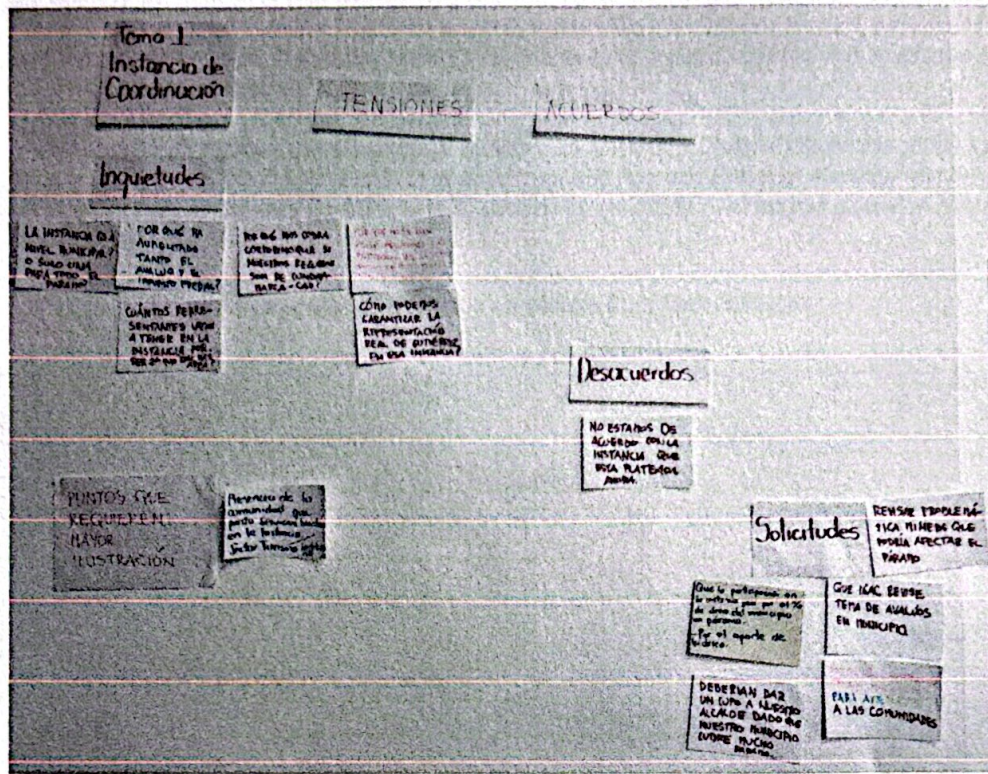 Tema 1
Instancia de
Coordinación
TENSIONES
ACUERDOS
Inquietudes
LA INSTANCIA
NIVEL MUNICIPAL?
O SOLO UNA
PARA TODO EL
PÁRAMO?
POR QUÉ HA
AUMENTADO
TANTO EL
AVALUO Y EL
IMPUESTO PREDIAL?
POR QUÉ NOS COBRA
SI
NUESTROS
SON DE
CUÁNTOS REPRE-
SENTANTES VAN
A TENER EN LA
INSTANCIA POR
SER
CÓMO PODEMOS
GARANTIZAR LA
REPRESENTACIÓ
REAL DE GUTIÉRREZ
EN ESA INSTANCIA?
Desacuerdos
NO ESTAMOS DE
ACUERDO CON LA
INSTANCIA QUE
ESTA PLATEADA
AHORA.
PUNTOS QUE
REQUIEREN
MAYOR
ILUSTRACIÓN
Presencia de la
comunidad que
presta
en la Instancia
Sector
Solicitudes
REVISAR PROBLEMÁ-
TICA MINERA QUE
PODRÍA AFECTAR EL
PÁRAMO
Que la participación en
la instancia sea por el %
de área del municipio
en páramo.
- Por el aporte de
hídrico.
QUE IGAC REVISE
TEMA DE AVALÚOS
EN MUNICIPIO
DEBERIAN DAR
UN CUPO A NUESTRO
ALCALDE DADO QUE
NUESTRO MUNICIPIO
CUBRE MUCHO
PÁRAMO.
PARA
A LAS COMUNIDADES